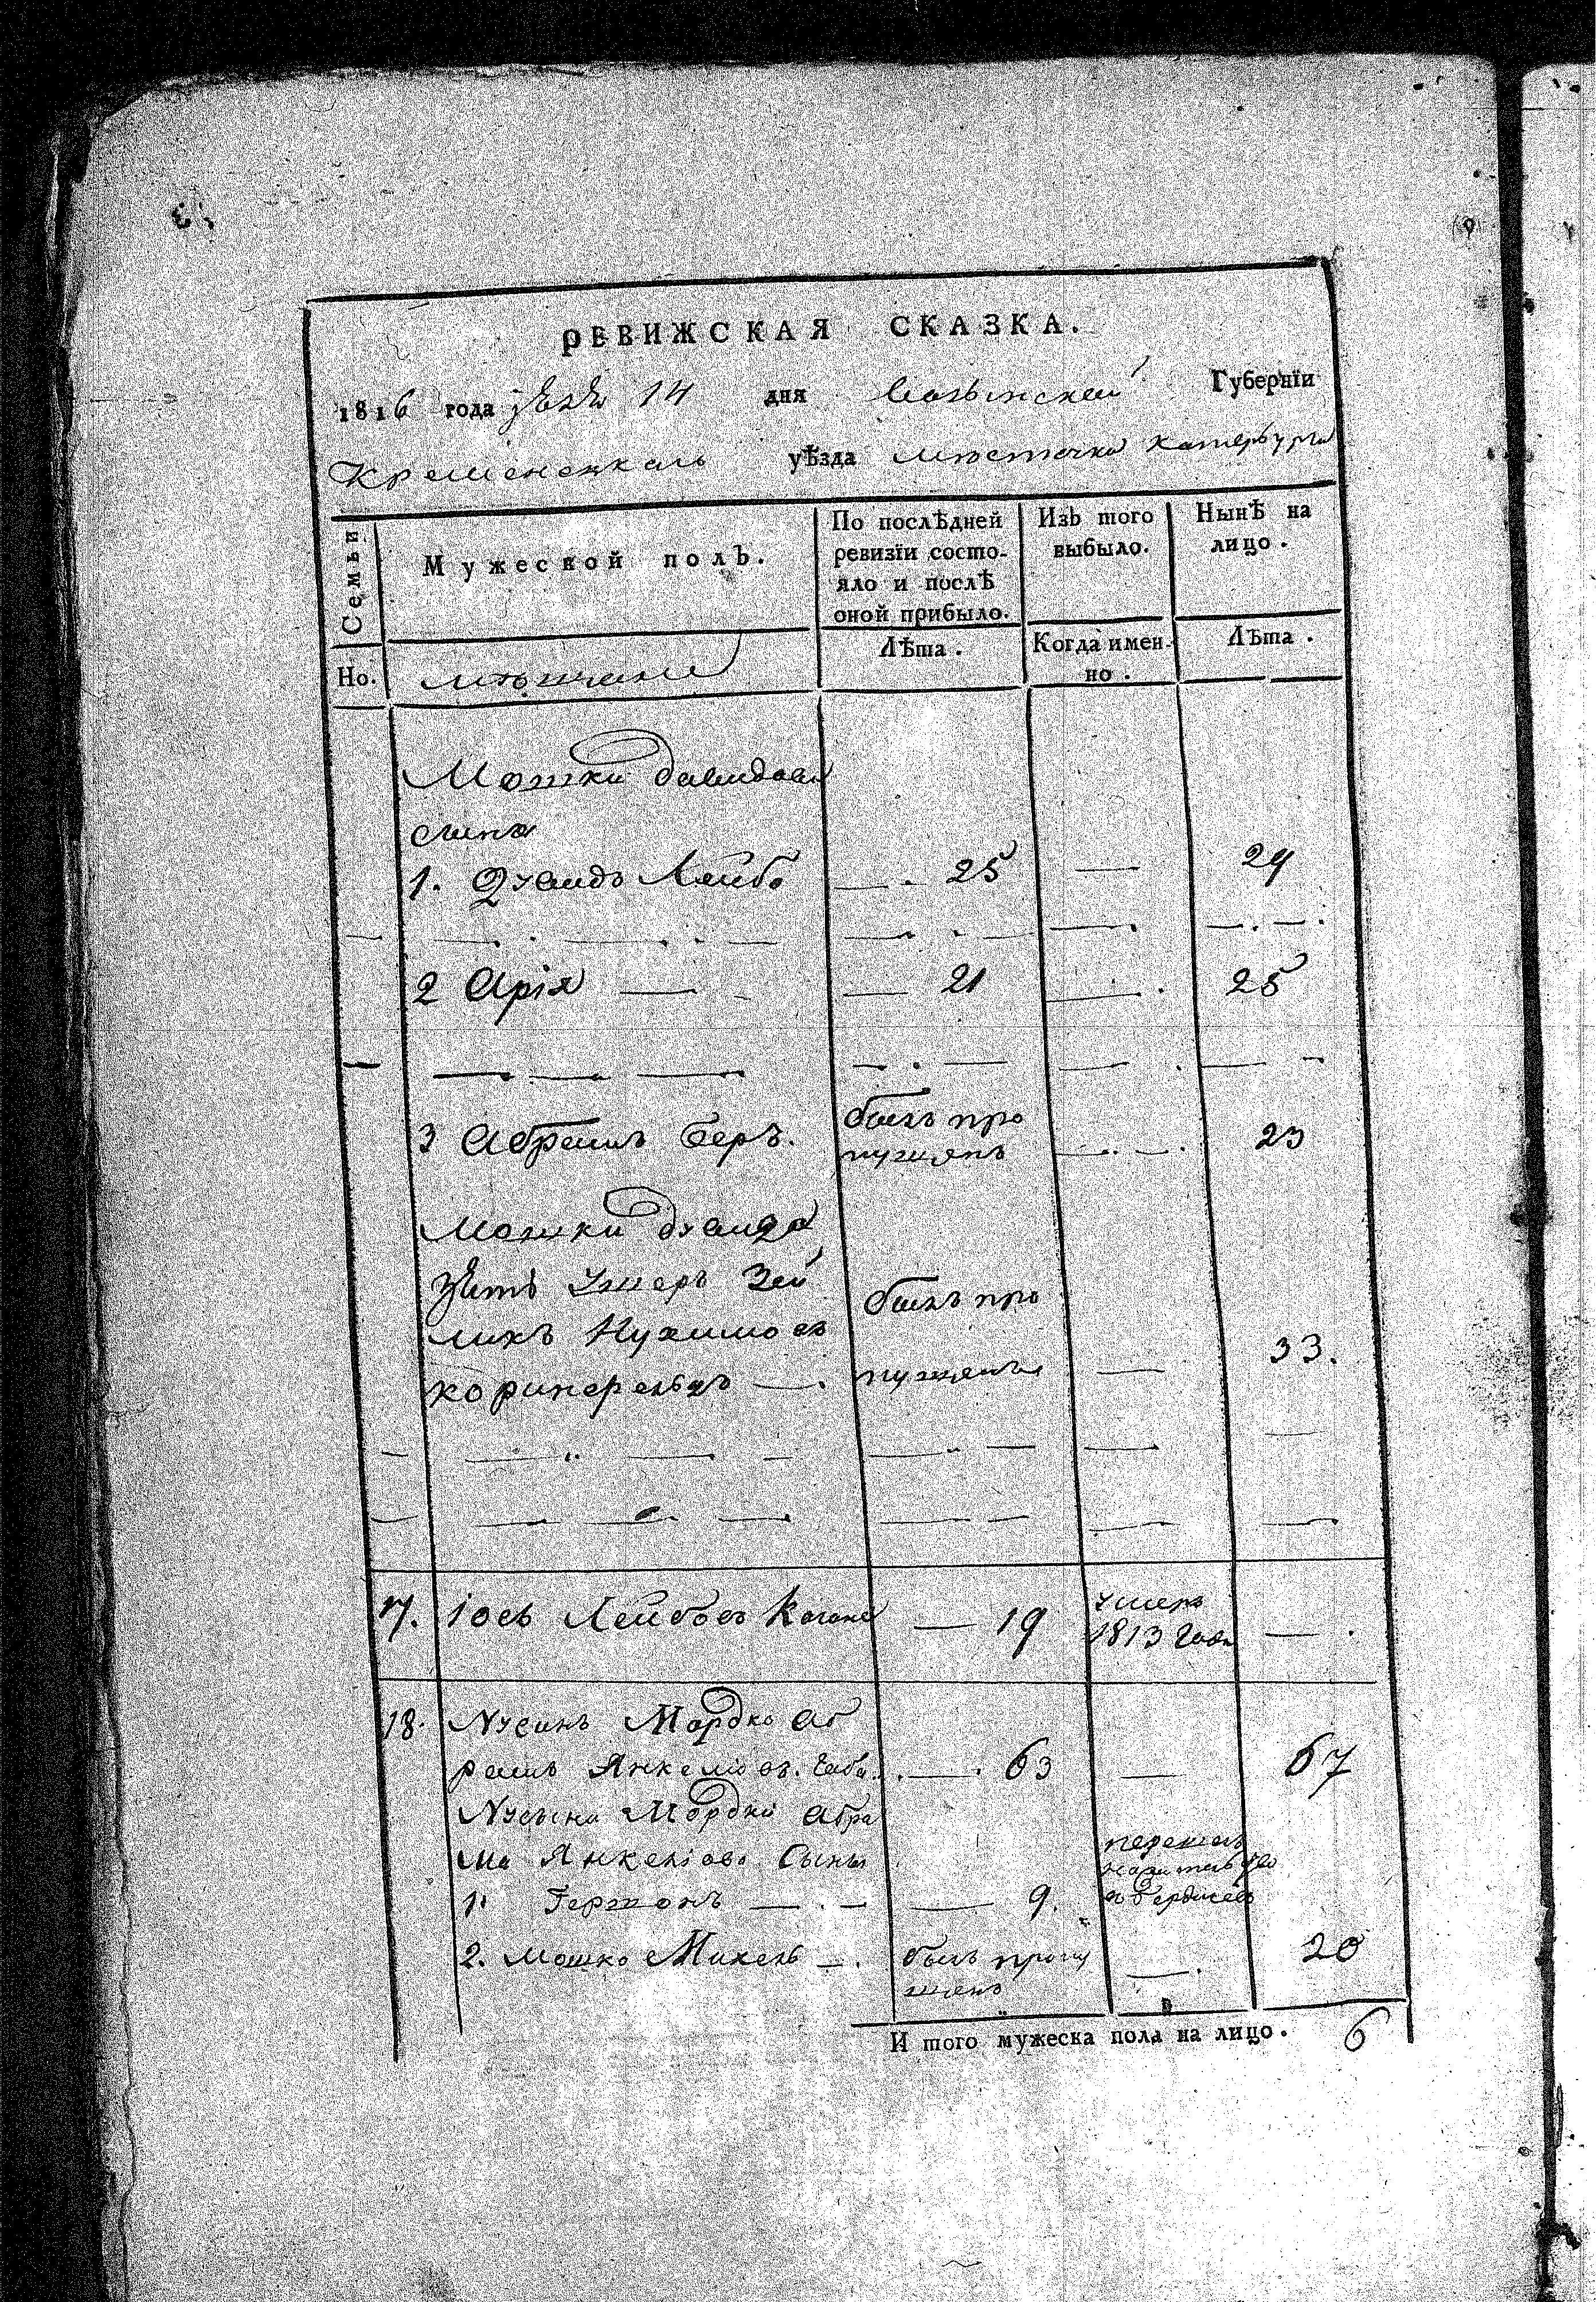 РЕВИЖСКАЯ СКАЗКА.
1816 года 14 дня Волынской Губернїи
Кременецкаго уѣзда местечка Катербурга
Семьи
Мужескои полъ.
По послѣдней
ревизїи состо-
яло и послѣ
оной прибыло.
Изъ того
выбыло.
Нынѣ на
лицо.
Но.
мѣщане
Лѣта.
Когда имен-
но.
Лѣта.
Мошки Давидова
сына
1. Лейбо — 25 — 29
2 Арія — 21 — 25
3 Абрамъ Беръ. былъ про
пущенъ — 23
Мошки
зять Зей
ликъ Нухимовъ былъ про
— пущенъ — 33.
17. Іось Лейбовъ Коганъ — 19 умеръ
1813 года —
18. Нусинъ Мордко Аб
рамъ Янкеліов. — 63 — 67
Нусына Мордки Абра
ма Янкеліова Сыны
1. Гершонъ — 9. перешелъ
на жительство
в Бердичевъ
2. Мошко Михель — былъ пропу
щенъ — 20
И того мужеска пола на лицо. 6